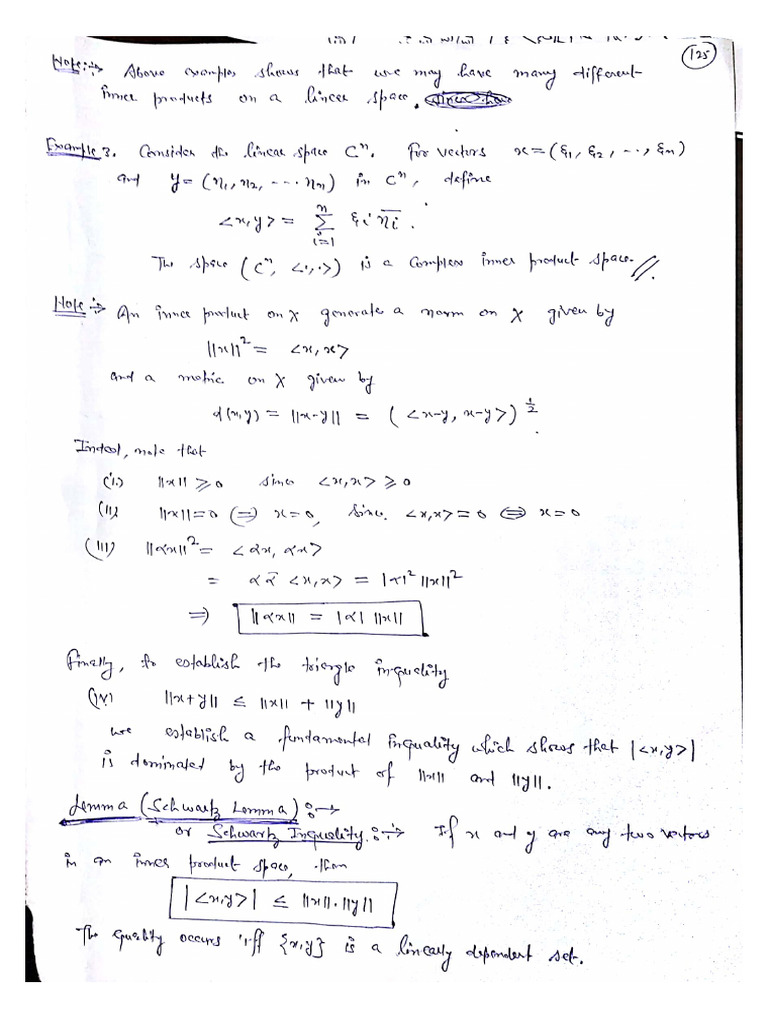 125
Note:→ Above examples shows that we may have many different
inner products on a linear space.
Example 3. Consider the linear space Cⁿ. For vectors x = (ξ₁, ξ₂, ..., ξₙ)
and y = (η₁, η₂, ---- ηₙ) in Cⁿ, define
<x,y> = Σⁿᵢ₌₁ ξᵢ η̄ᵢ.
The space (Cⁿ, <·,·>) is a complex inner product space. //
Note:→ An inner product on X generate a norm on X given by
||x||² = <x, x>
and a metric on X given by
d(x,y) = ||x-y|| = (<x-y, x-y>)^1/2.
Indeed, note that
(i) ||x|| ≥ 0 since <x,x> ≥ 0
(ii) ||x|| = 0 ⇔ x = 0, since <x,x> = 0 ⇔ x = 0
(iii) ||αx||² = <αx, αx>
= α ᾱ <x,x> = |α|² ||x||²
⇒ ||αx|| = |α| ||x||
Finally, to establish the triangle inequality
(iv) ||x+y|| ≤ ||x|| + ||y||
we establish a fundamental inequality which shows that |<x,y>|
is dominated by the product of ||x|| and ||y||.
Lemma (Schwartz Lemma):→
or Schwartz Inequality:→ If x and y are any two vectors
in an inner product space, then
|<x,y>| ≤ ||x||.||y||
The equality occurs iff {x,y} is a linearly dependent set.